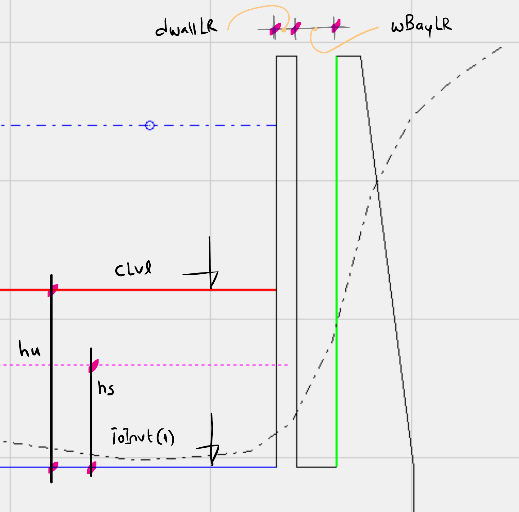 dwallLR
wBayLR
cLvl
hu
hs
ioInvt(1)